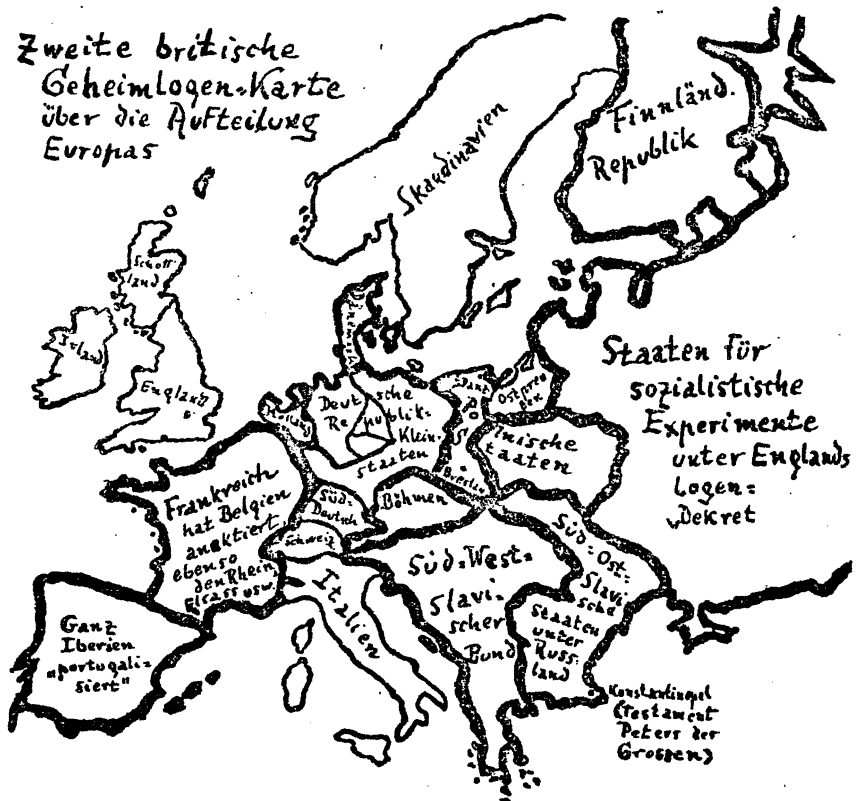 Zweite britische
Geheimlogen-Karte
über die Aufteilung
Europas
Skandinavien
Finnländ.
Republik
Schott
land
Irland
England
Holland
Deutsche
Republik-
Klein-
staaten
Ostpreu
ßen
Po
Breslau
lnische
taaten
Staaten für
sozialistische
Experimente
unter Englands
Logen=
Dekret
Frankreich
hat Belgien
anektiert
ebenso
den Rhein,
Elsass usw.
Süd=
Deutsch
Schweiz
Böhmen
Italien
Süd=West=
Slavi=
scher
Bund
Süd=Ost=
Slavi
sche
Staaten
unter
Russ=
land
Ganz
Iberien
„portugali=
siert"
Konstantinopel
(Testament
Peters der
Grossen)